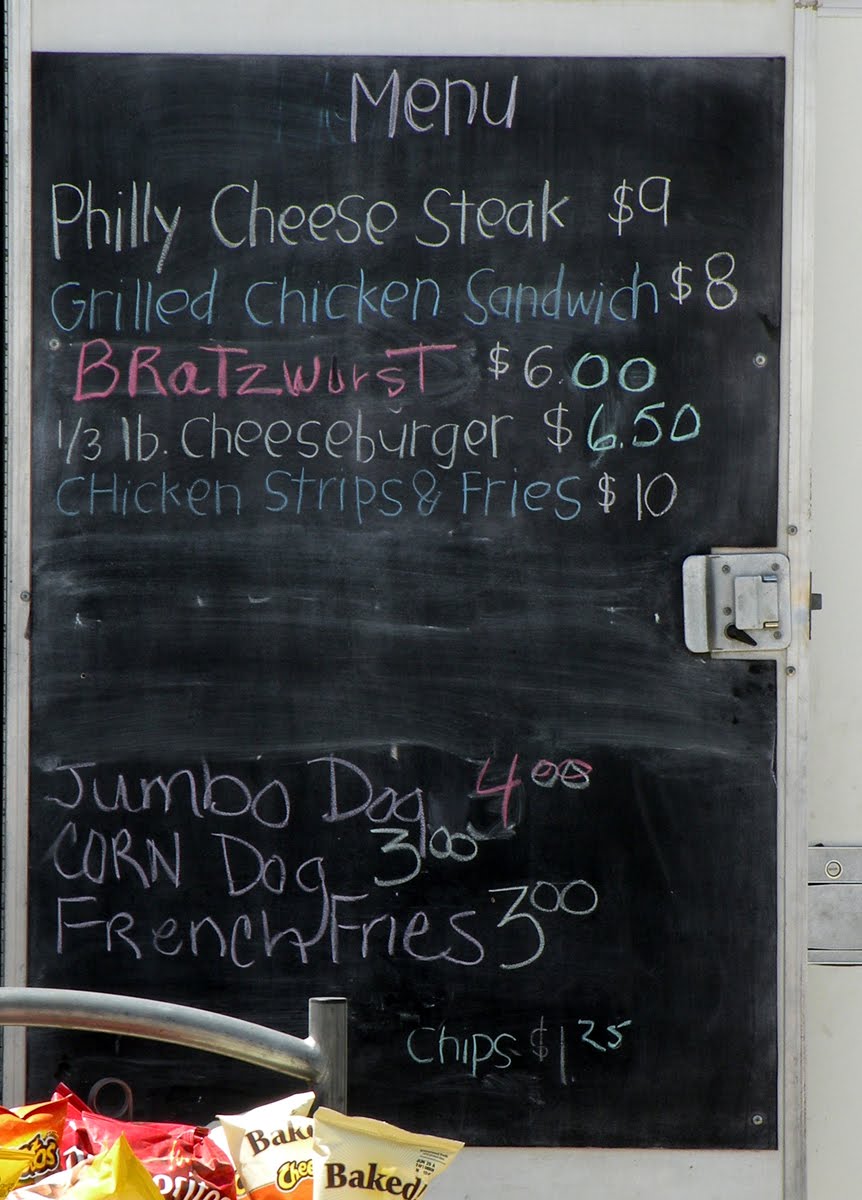 Menu
Philly Cheese Steak $9
Grilled Chicken Sandwich $8
BRaTzWursT $6.00
1/3 lb. Cheeseburger $6.50
CHicken Strips & Fries $10
Jumbo Dog 4.00
CORN Dog 3.00
French Fries 3.00
Chips $1.25
Baked!